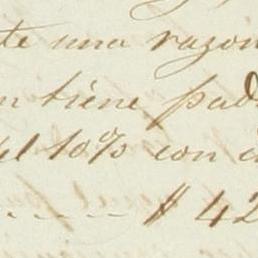 te una razon
n tiene pad
el 10% con
$ 42